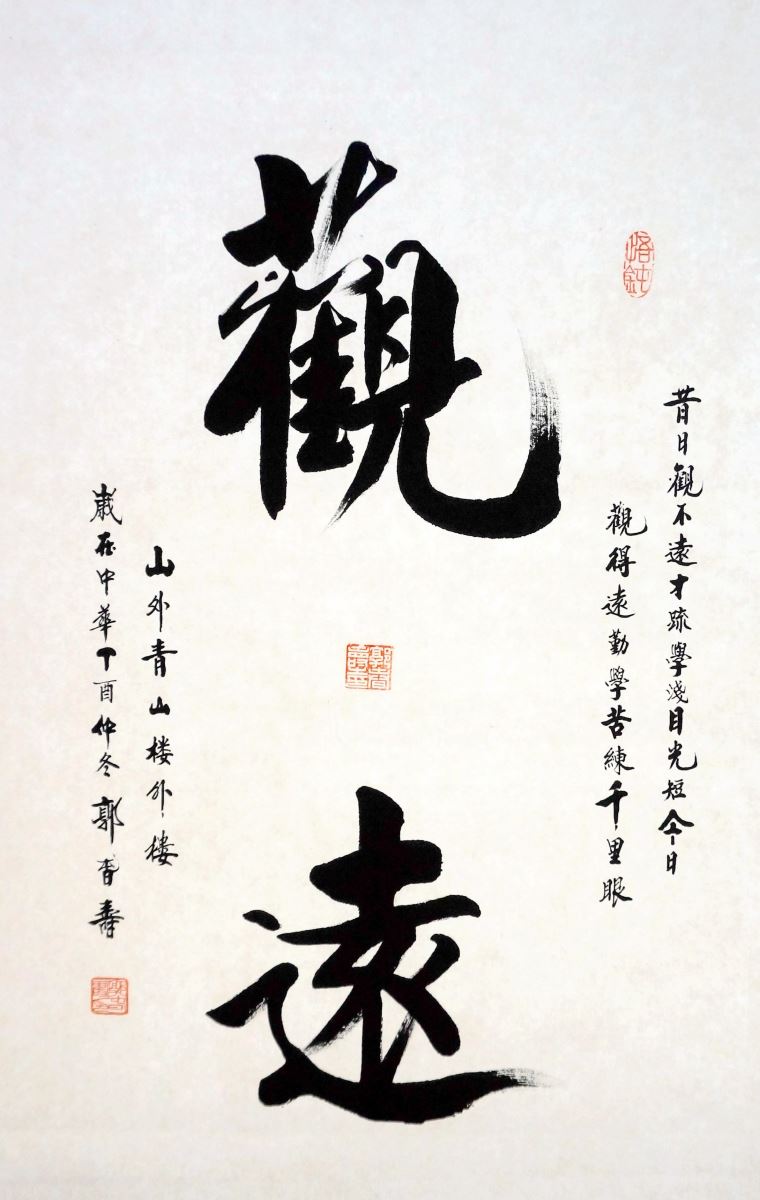 昔日觀不遠才疏學淺目光短今日
觀得遠勤學苦練千里眼
觀
遠
山外青山楼外樓
歲在中華丁酉仲冬郭香壽